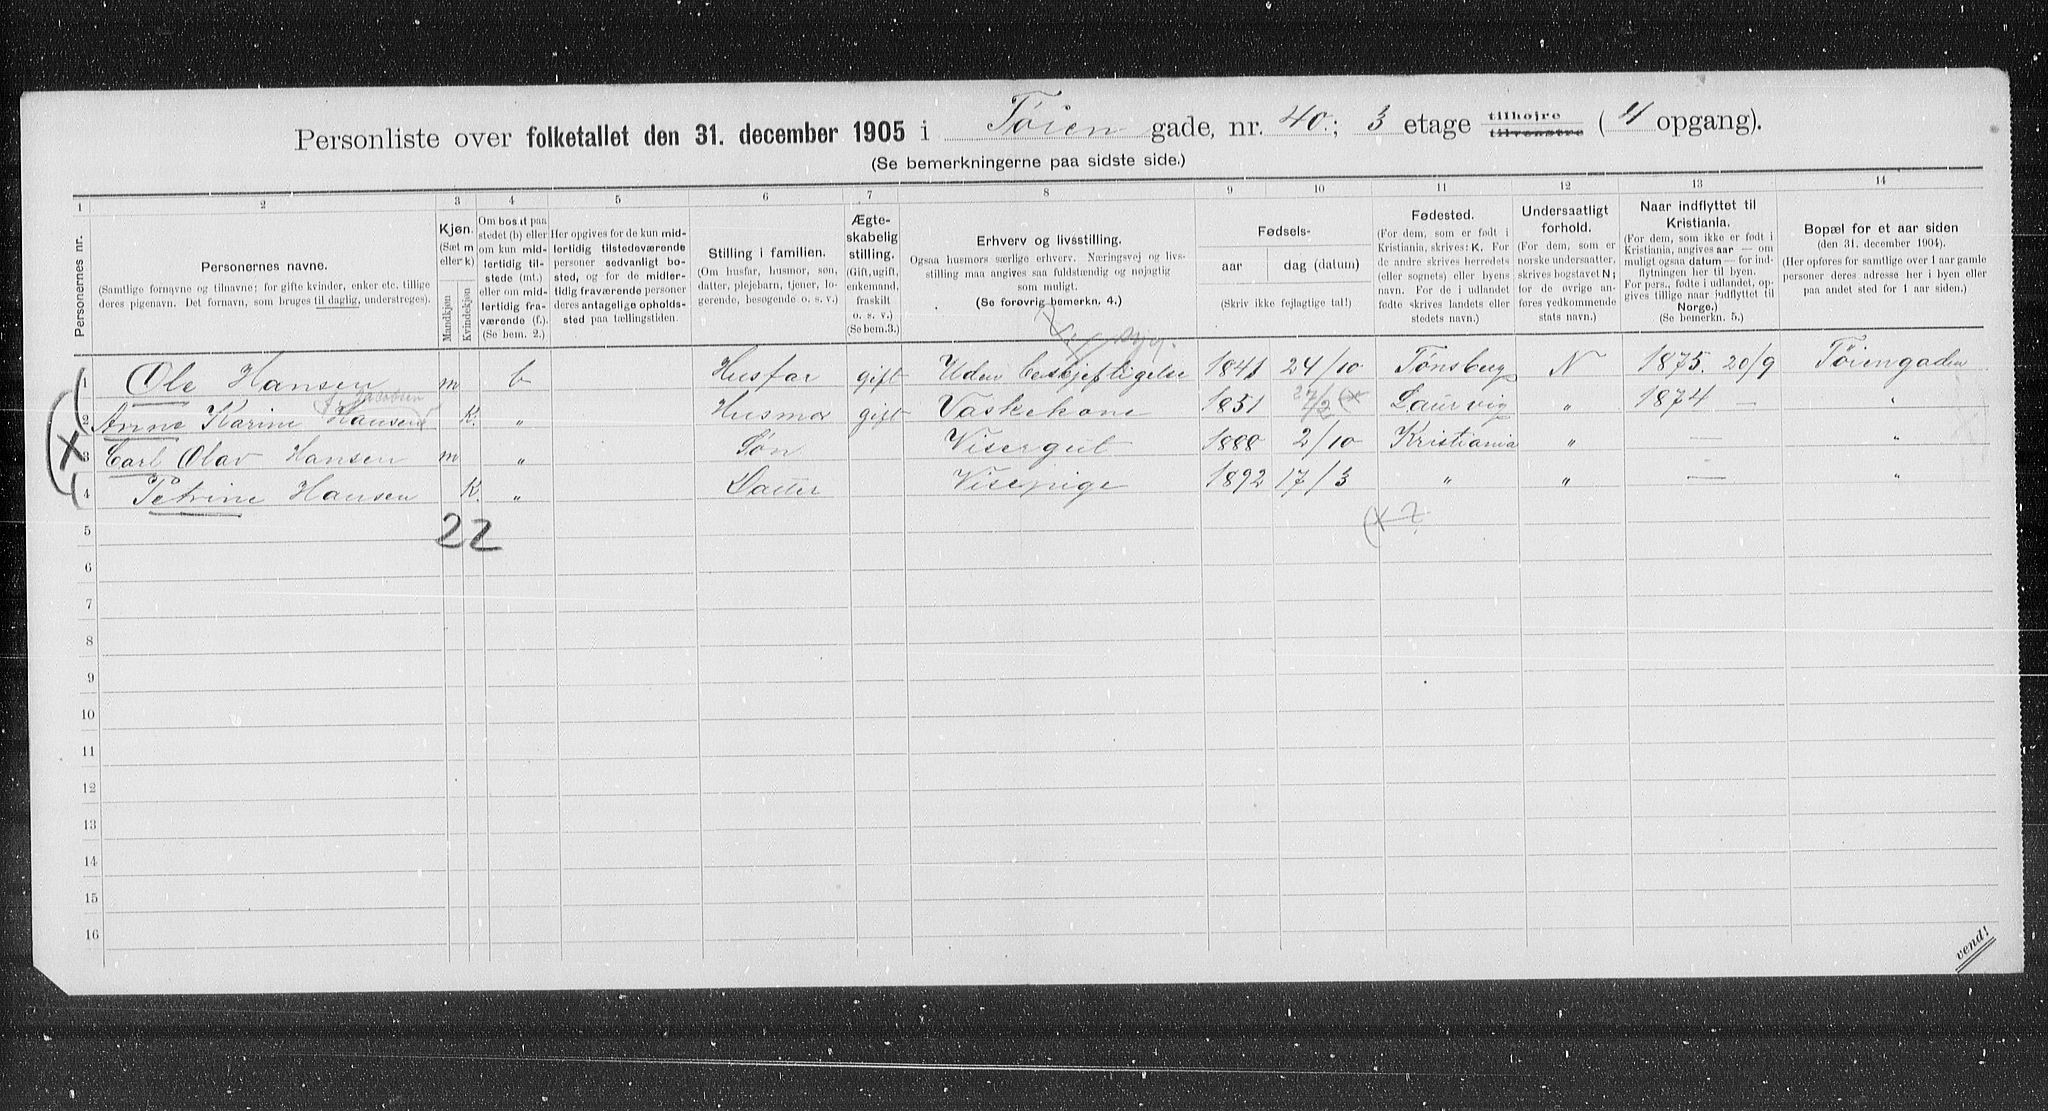 Personliste over folketallet den 31. december 1905 i Tøien gade, nr. 40.; 3 etage tilhøjre tilvenstre (4 opgang).
(Se bemerkningerne paa sidste side.)
1 2 3 4 5 6 7 8 9 10 11 12 13 14
Personernes nr.
Personernes navne.
(Samtlige fornavne og tilnavne; for gifte kvinder, enker etc. tillige
deres pigenavn. Det fornavn, som bruges til daglig, understreges).
Kjøn.
(Sæt m
eller k)
Mandkjøn
Kvindekjøn
Om bosat paa
stedet (b) eller
om kun mid-
lertidig til-
stede (mt.)
eller om mid-
lertidig fra-
værende (f.).
(Se bem. 2.)
Her opgives for de kun mid-
lertidig tilstedeværende
personer sedvanligt bo-
sted, og for de midler-
tidig fraværende personer
deres antagelige opholds-
sted paa tællingstiden.
Stilling i familien.
(Om husfar, husmor, søn,
datter, plejebarn, tjener, lo-
gerende, besøgende o. s. v.)
Ægte-
skabelig
stilling.
(Gift, ugift,
enkemand,
fraskilt
o. s. v.)
(Se bem.3.)
Erhverv og livsstilling.
Ogsaa husmors særlige erhverv. Næringsvej og livs-
stilling maa angives saa fuldstændig og nøjagtig
som muligt.
(Se forøvrig bemerkn. 4.)
Fødsels-
aar
dag (datum)
(Skriv ikke fejlagtige tal!)
Fødested.
(For dem, som er født i
Kristiania, skrives: K. For
de andre skrives herredets
(eller sognets) eller byens
navn. For de i udlandet
fødte skrives landets eller
stedets navn.)
Undersaatligt
forhold.
(For dem, som er
norske undersaatter,
skrives bogstavet N;
for de øvrige an-
føres vedkommende
stats navn.)
Naar indflyttet til
Kristiania.
(For dem, som ikke er født i
Kristiania, angives aar — om
muligt ogsaa datum — for ind-
flytningen her til byen.
For pers., fødte i udlandet, op-
gives tillige naar indflyttet til
Norge.)
(Se bemerkn. 5.)
Bopæl for et aar siden
(den 31. december 1904).
(Her opføres for samtlige over 1 aar gamle
personer deres adresse her i byen eller
paa andet sted for 1 aar siden.)
syg.
1 Ole Hansen m b Husfar gift Uden beskjeftigelse 1841 24/10 Tønsberg N 1875. 20/9 Tøiengaden
f. Jacobsen
2 Anne Karine Hansen K. „ Husmor gift Vaskekone 1851 Laurvig „ 1874 — „
3 Carl Olav Hansen m „ Søn Visergut 1888 2/10 Kristiania „ — „
4 Petrine Hansen K. „ Datter Visepige 1892 17/3 „ „ — „
22
(x ?
5
6
7
8
9
10
11
12
13
14
15
16
vend!